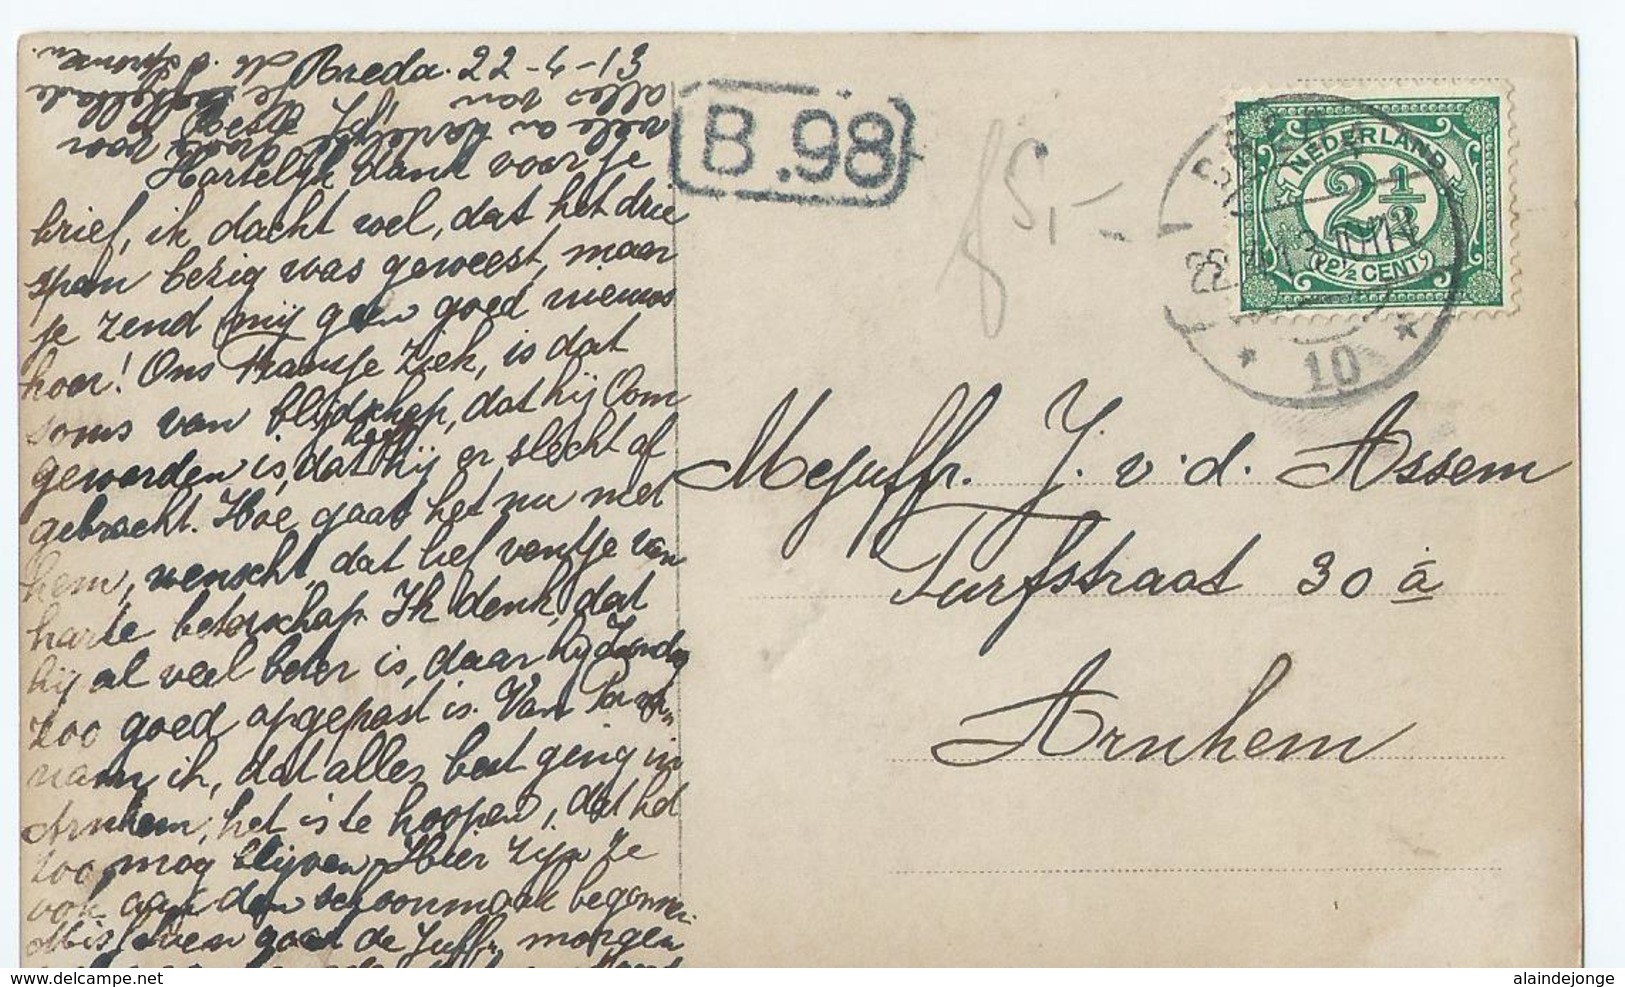 Breda. 22-4-13
Hartelijk dank voor je
brief, ik dacht wel, dat het drie
span bezig was geweest, maar
je zend mij geen goed nieuws
hoor! Ons Fransje ziek, is dat
soms van blijdschap, dat hij Oom
geworden is, dat heeft hij er slecht af
gebracht. Hoe gaat het nu met
hem, wensch dat lief ventje van
harte beterschap. Ik denk, dat
hij al veel beter is, daar hij Zondag
zoo goed opgepast is. Van
nam ik, dat alles best ging in
Arnhem, het is te hoopen, dat het
zoo mog blijven. Hier zijn ze
ook aan den schoonmaak begonnen.
gaat de Juffr. morgen
vele en hartelijke groeten voor
alles van
B.98
f 5,-
NEDERLAND
2 1/2
(2 1/2 CENT)
BREDA
22.4.13
* 10 *
Mejuffr. J. v. d. Assem
Turfstraat 30 a
Arnhem
www.delcampe.net
alaindejonge